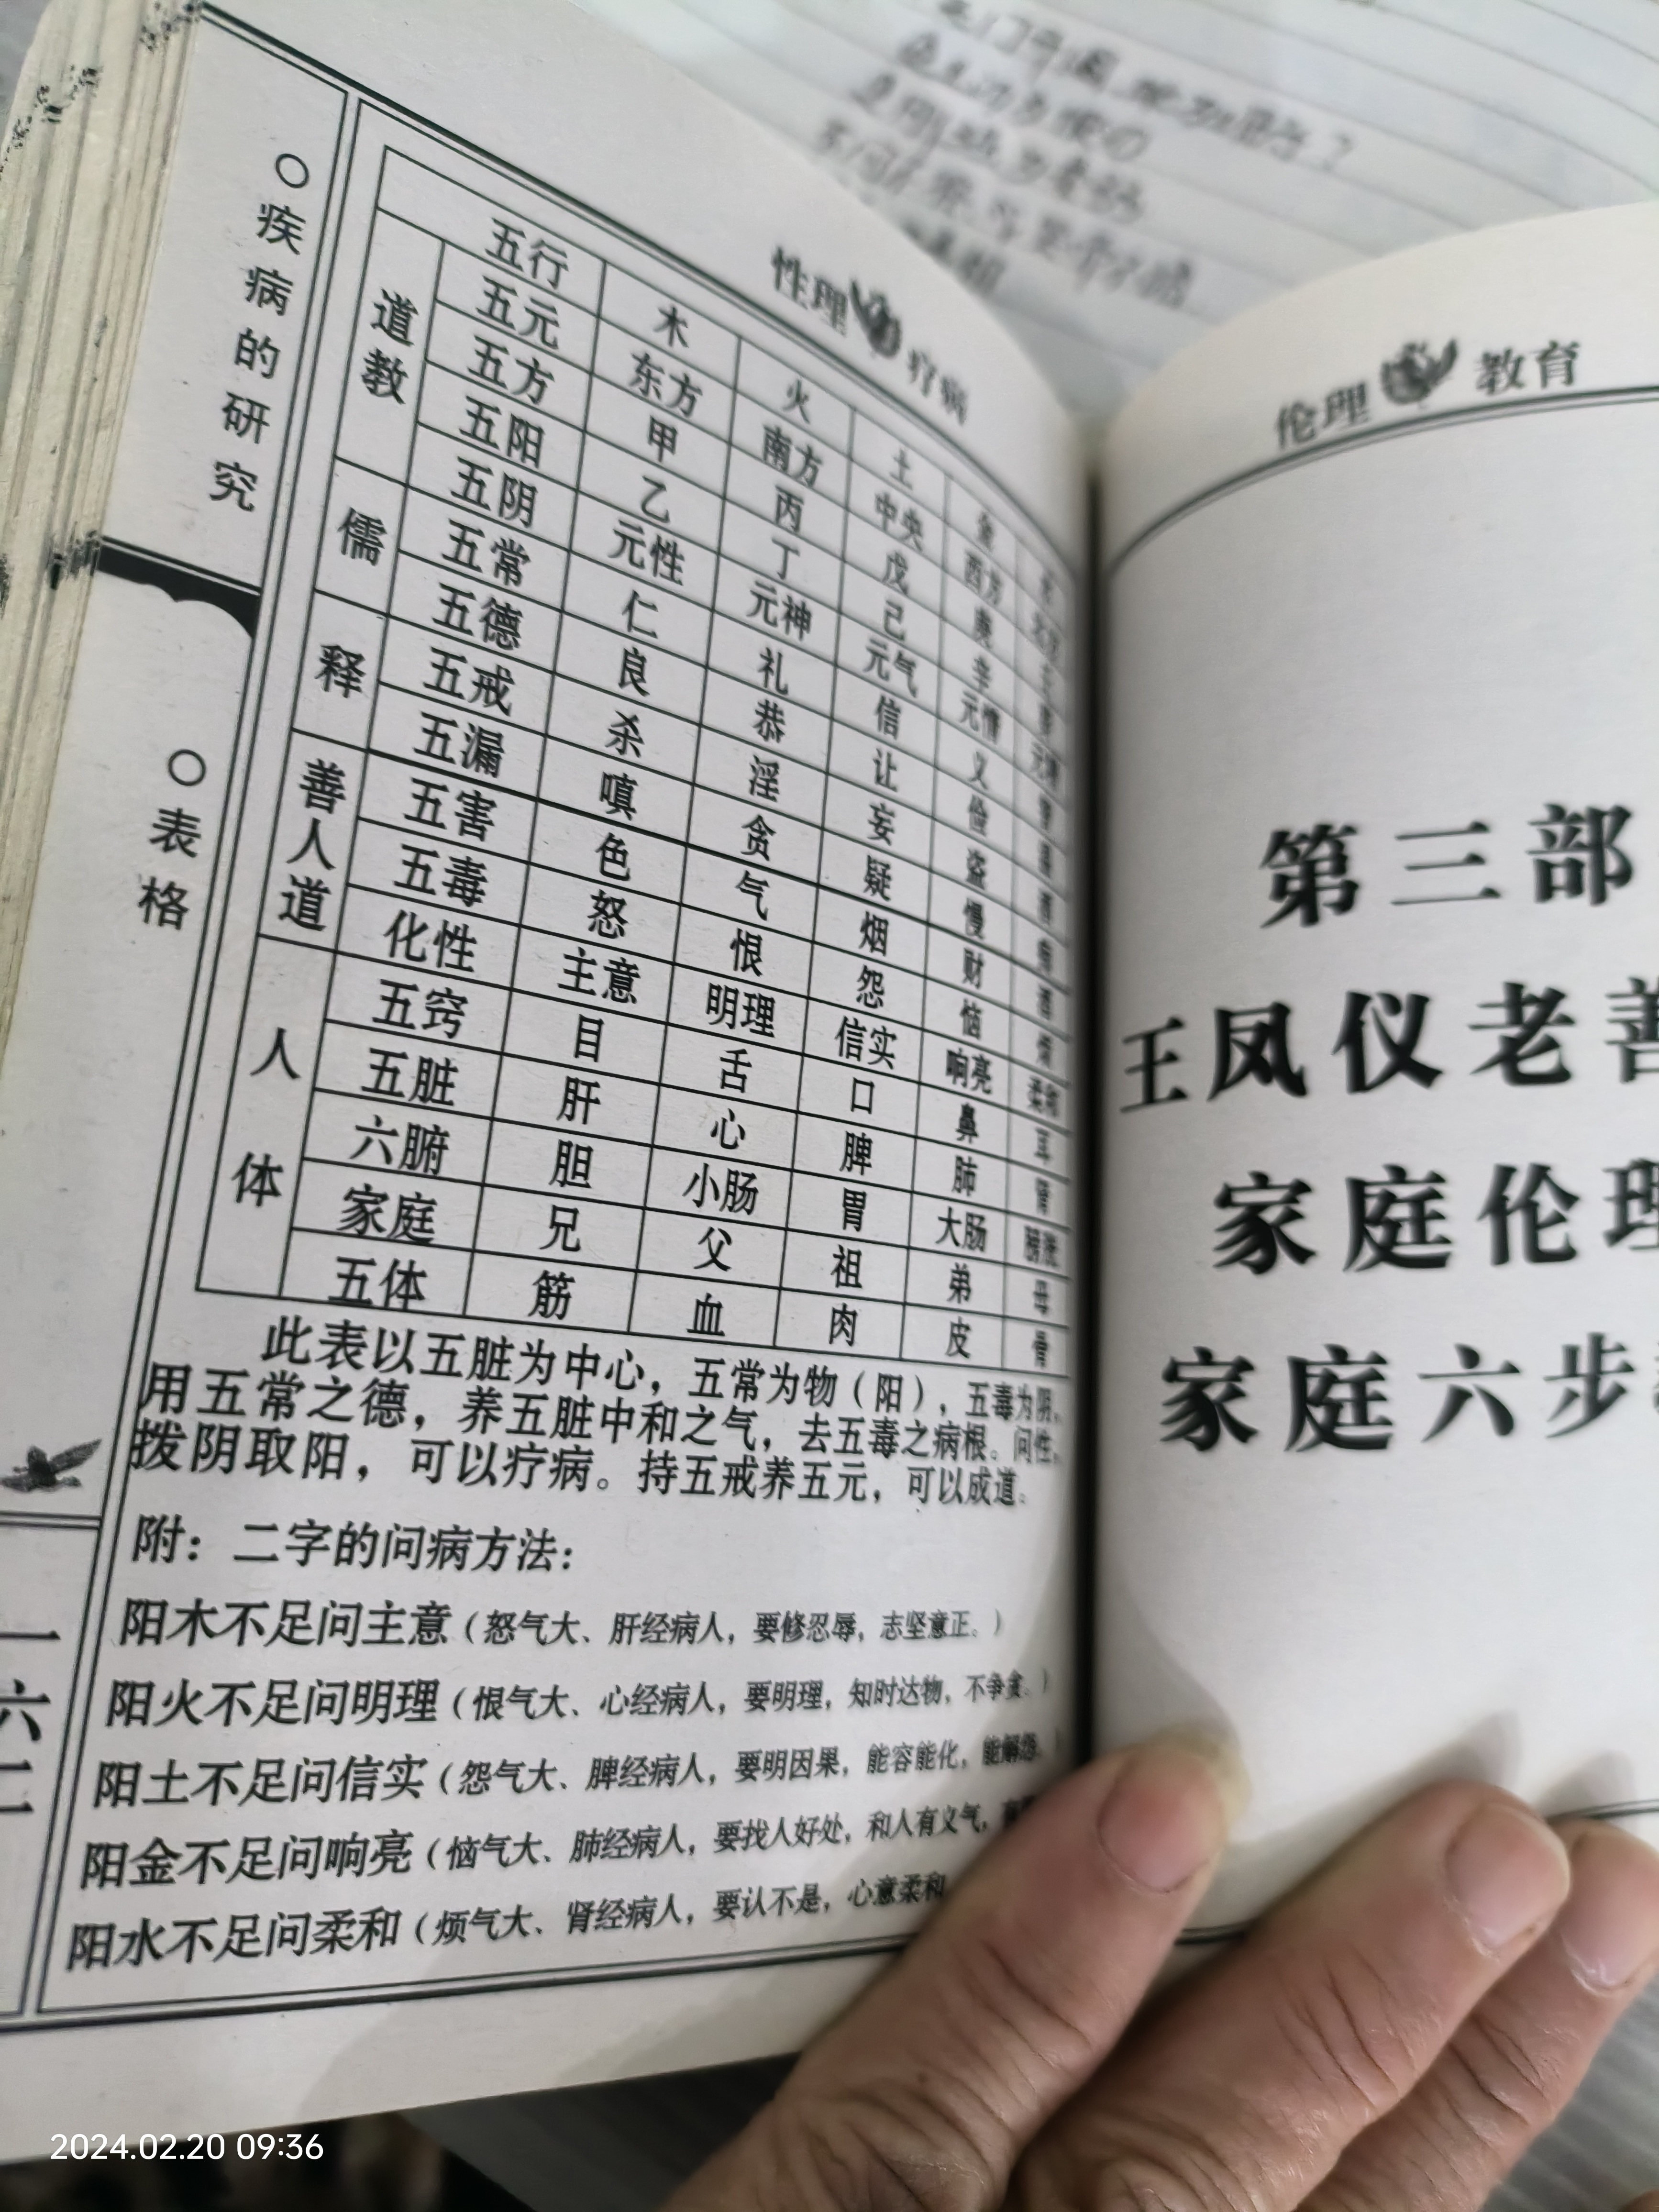 性理 疗病
○疾病的研究
○表格
一六二
五行 木 火 土 金
道教
五元 东方 南方 中央 西方
五方 甲 丙 戊 庚
五阳 乙 丁 己 辛
五阴 元性 元神 元气 元情
儒
五常 仁 礼 信 义
五德 良 恭 让 俭
释
五戒 杀 淫 妄 盗
五漏 嗔 贪 疑 慢
善人道
五害 色 气 烟 财
五毒 怒 恨 怨 恼 烦
化性 主意 明理 信实 响亮 柔和
人体
五窍 目 舌 口 鼻 耳
五脏 肝 心 脾 肺 肾
六腑 胆 小肠 胃 大肠 膀胱
家庭 兄 父 祖 弟 母
五体 筋 血 肉 皮 骨
此表以五脏为中心，五常为物（阳），五毒为阴，
用五常之德，养五脏中和之气，去五毒之病根。问性，
拨阴取阳，可以疗病。持五戒养五元，可以成道。
附：二字的问病方法：
阳木不足问主意（怒气大、肝经病人，要修忍辱，志坚意正。）
阳火不足问明理（恨气大、心经病人，要明理，知时达物，不争贪。）
阳土不足问信实（怨气大、脾经病人，要明因果，能容能化，能解怨。）
阳金不足问响亮（恼气大、肺经病人，要找人好处，和人有义气，
阳水不足问柔和（烦气大、肾经病人，要认不是，心意柔和
伦理 教育
第三部
王凤仪老善
家庭伦理
家庭六步
2024.02.20 09:36